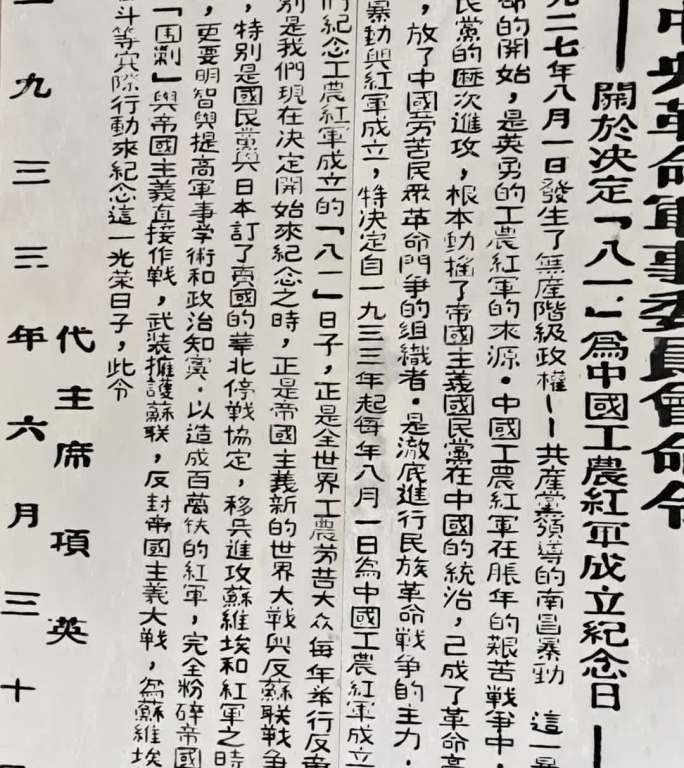 中央革命軍事委員會命令
——關於決定「八一」為中國工農紅軍成立紀念日——
九二七年八月一日發生了無產階級政權——共產黨領導的南昌暴動 這一暴
命的開始，是英勇的工農紅軍的來源·中國工農紅軍在脹年的艱苦戰爭中，
民黨的歷次進攻，根本動搖了帝國主義國民黨在中國的統治，已成了革命高
，放了中國勞苦民眾革命鬥爭的組織者·是澈底進行民族革命戰爭的主力·
暴動與紅軍成立，特決定自一九三三年起每年八月一日為中國工農紅軍成立
們紀念工農紅軍成立的「八一」日子，正是全世界工農勞苦大众每年举行反帝
別是我們現在決定開始來紀念之時，正是帝國主義新的世界大戰與反蘇联戰爭
，特別是國民黨與日本訂了賣國的華北停戰協定，移兵進攻蘇維埃和紅軍之時
，更要明智與提高軍事学術和政治知覺·以造成百萬鉄的紅軍，完全粉碎帝國
「围剿」與帝國主義直接作戰，武裝擁護蘇联，反封帝國主義大戰，為蘇維埃
斗等实際行動來紀念這一光荣日子，此令
代主席 項英
一九三三年六月三十